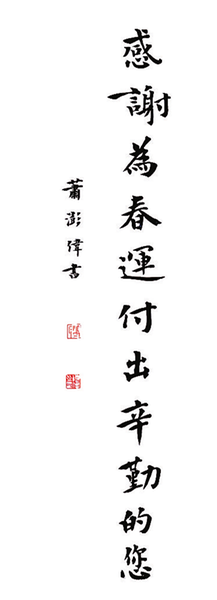 感謝為春運付出辛勤的您
蕭澎偉書